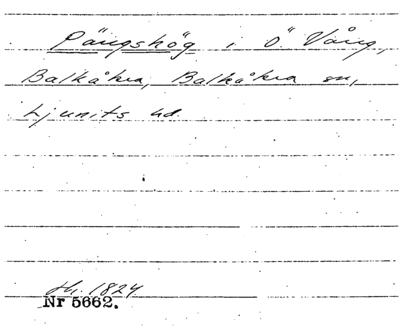 Pängshög i Ö. Vång,
Balkåkra, Balkåkra sn,
Ljunits hd.
sk. 1824
Nr 5662.